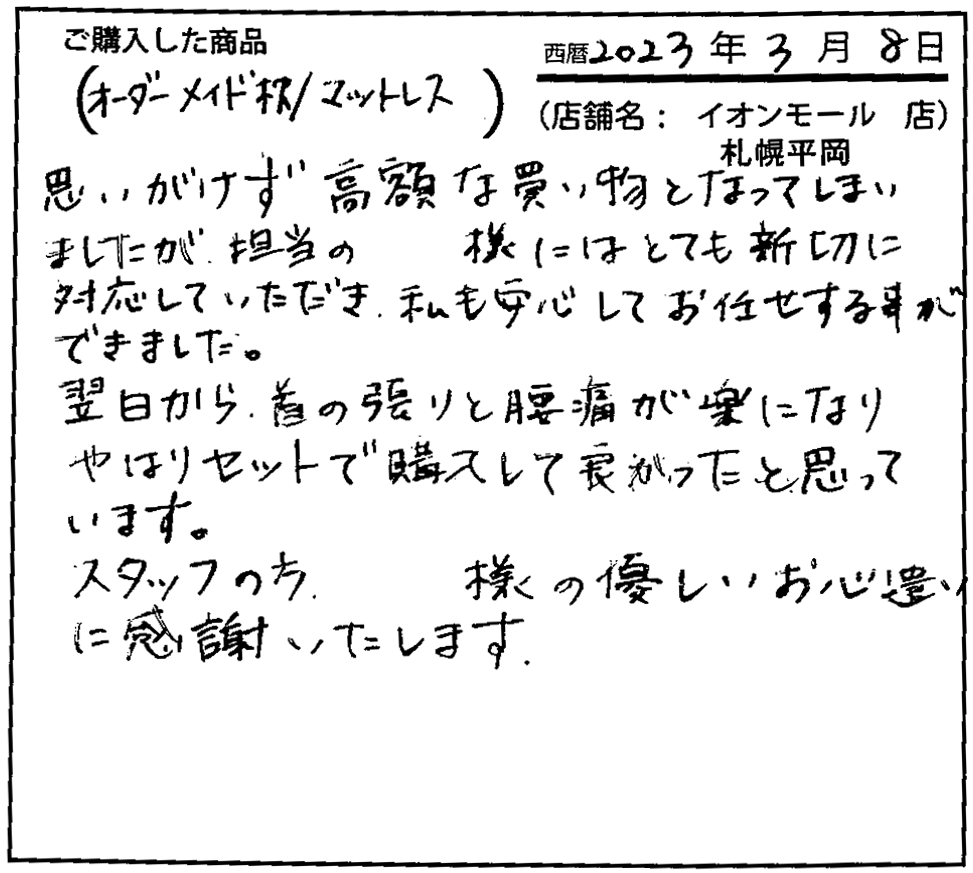 ご購入した商品
(オーダーメイド枕/マットレス)
西暦2023年3月8日
(店舗名： イオンモール 店)
札幌平岡
思いがけず高額な買い物となってしまい
ましたが、担当の 様にはとても親切に
対応していただき、私も安心してお任せする事が
できました。
翌日から、首の張りと腰痛が楽になり
やはりセットで購入して良かったと思って
います。
スタッフの方、 様の優しいお心遣い
に感謝いたします。